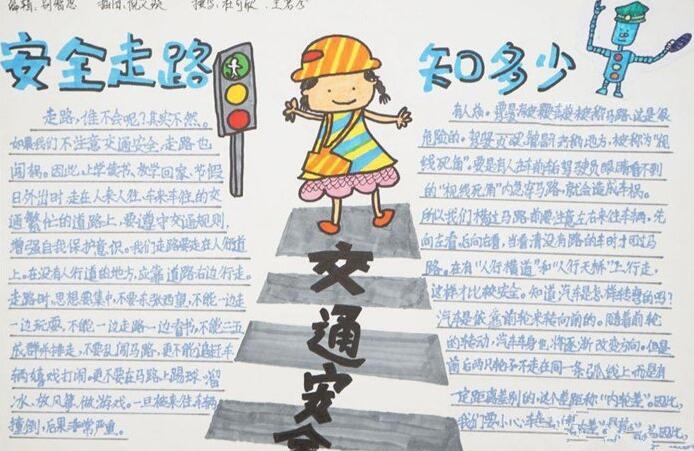 安全走路
知多少
走路，谁不会呢？其实不然。
如果我们不注意交通安全，走路也
闯祸。因此，上学读书、放学回家、节假
日外出时，走在人来人往、车来车往的交
通繁忙的道路上，要遵守交通规则，
增强自我保护意识。我们走路要走在人行道
上。在没有人行道的地方，应靠道路右边行走。
走路时，思想要集中，不要东张西望，不能一边走
一边玩耍，不能一边走路一边看书，不能三五
成群并排走，不要乱闯马路，更不能追赶车
辆嬉戏打闹。更不要在马路上踢球、溜
冰、放风筝、做游戏。一旦被来往车辆
撞倒，后果非常严重。
危险的。驾驶员
线死角”。要是有人在前轮驾驶员眼睛看不到
的“视线死角”内急穿马路，就会造成车祸。
所以我们横过马路前要注意左右来往车辆，先
向左看后向右看，当看清没有路的车时才可过马
路。在有“人行横道”和“人行天桥”上行走，
这样才比较安全。知道汽车是怎样转弯的吗？
汽车是依靠前轮来转向前的。随着前轮
的转动，汽车车身也将逐渐改变方向。但是
前后两只轮子不走在同一条弧线上而是有
一定距离差别的，这个差距称“内轮差”。因此，
我们要小心
交通安全